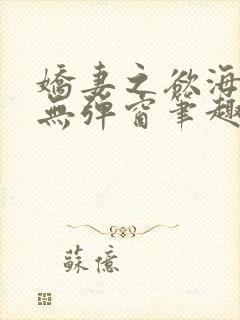 嬌妻之欲海
無彈窗筆趣
蘇億